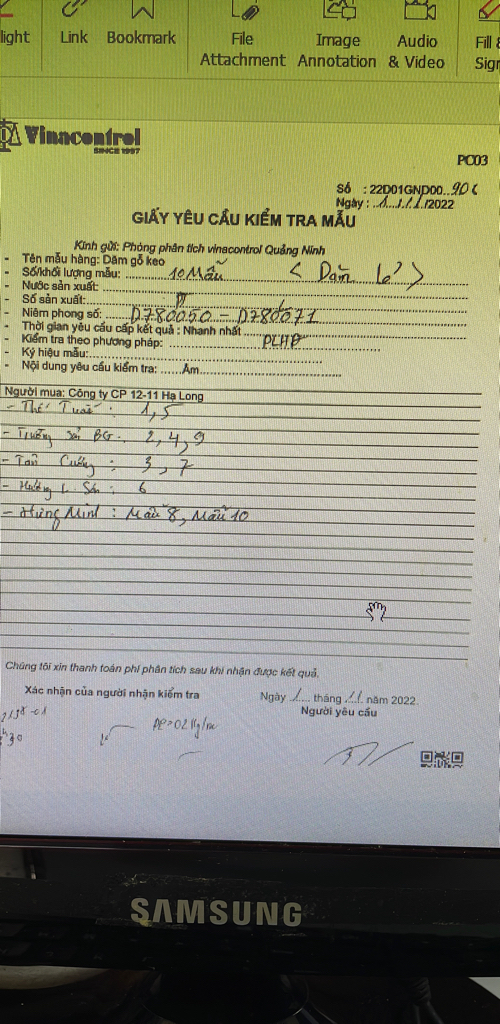 light Link Bookmark File Attachment Image Annotation Audio & Video Fill & Sign
Vinacontrol
SINCE 1997
PC03
Số : 22D01GND00..906
Ngày : ..1../.11./2022
GIẤY YÊU CẦU KIỂM TRA MẪU
Kính gửi: Phòng phân tích vinacontrol Quảng Ninh
- Tên mẫu hàng: Dăm gỗ keo
- Số/khối lượng mẫu: 10 Mẫu
- Nước sản xuất:
- Số sản xuất:
- Niêm phong số: D780050 - D780071
- Thời gian yêu cầu cấp kết quả : Nhanh nhất
- Kiểm tra theo phương pháp: PLHĐ
- Ký hiệu mẫu:
- Nội dung yêu cầu kiểm tra: Ẩm
Người mua: Công ty CP 12-11 Hạ Long
: 1, 5
- Trường Sơn BG : 2, 4, 9
- Tân Cường : 3, 7
- Hương L Sơn : 6
- Hưng Minh : Mẫu 8, Mẫu 10
Chúng tôi xin thanh toán phí phân tích sau khi nhận được kết quả.
Xác nhận của người nhận kiểm tra
Ngày .1... tháng .11. năm 2022.
Người yêu cầu
SAMSUNG